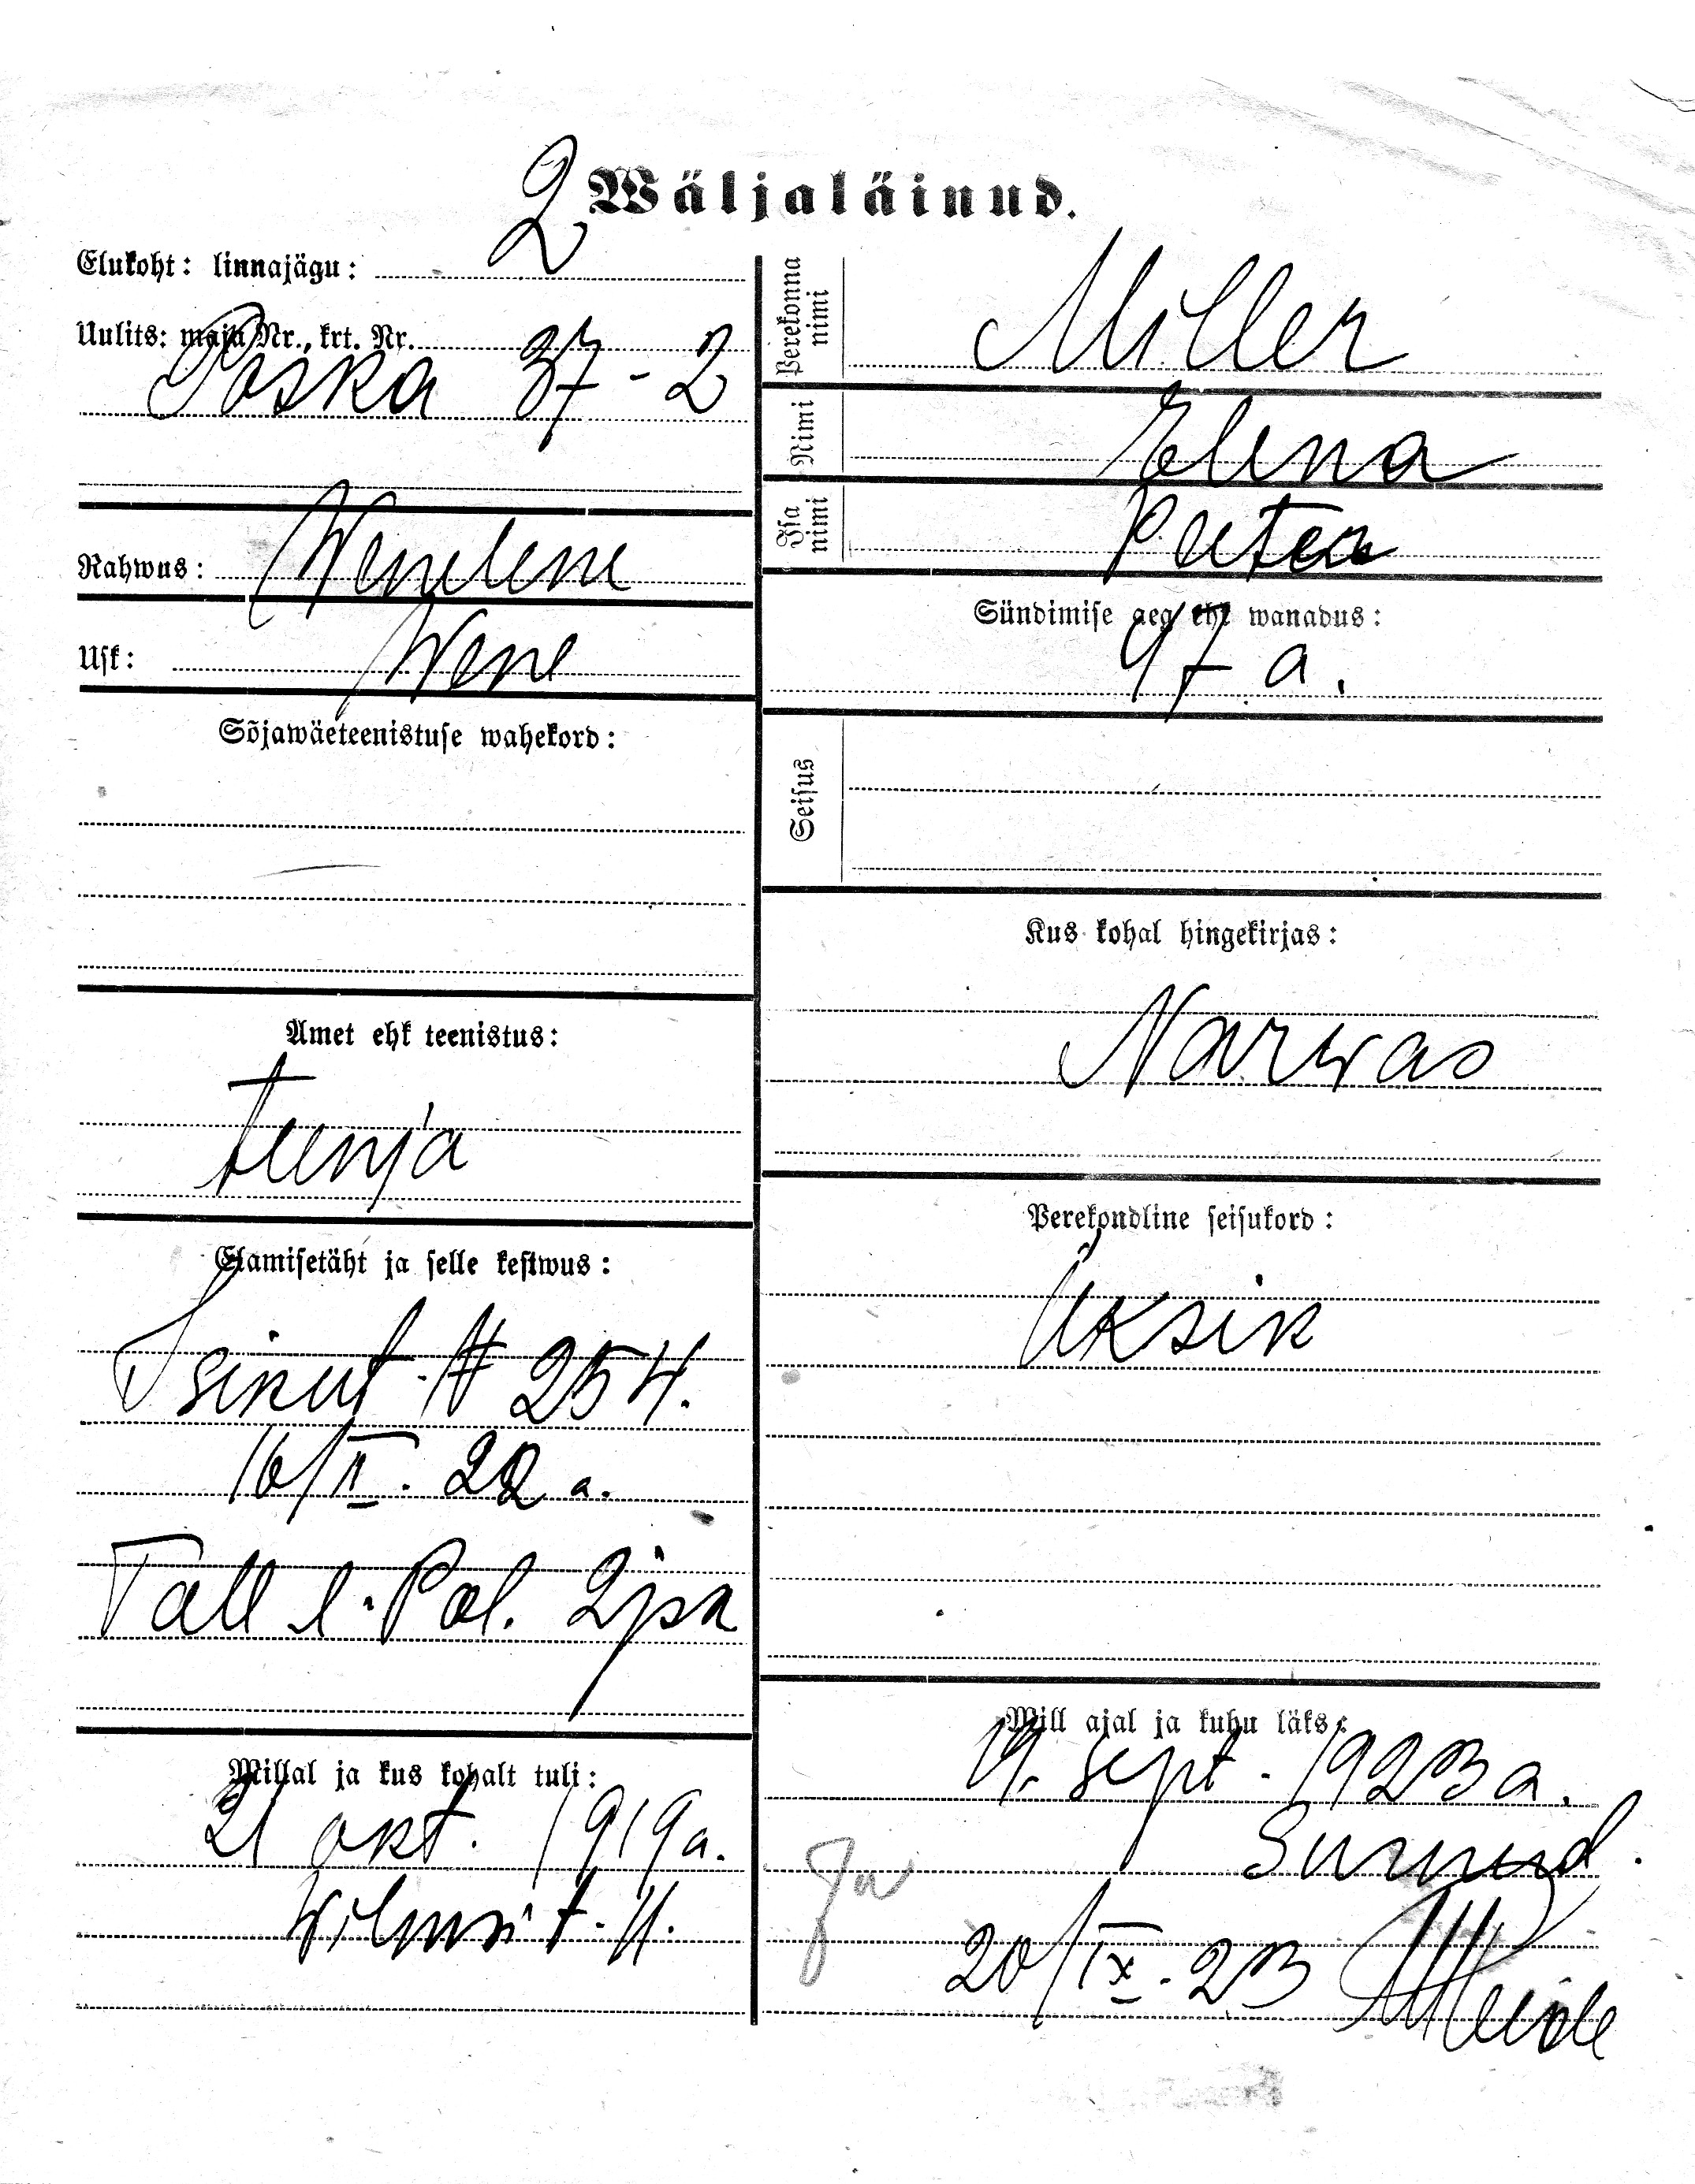 Wäljaläinud.
Elukoht: linnajägu: 2
Uulits: maja Nr., krt. Nr.
Poska 37-2
Rahwus: Wenelene
Usk: Wene
Sõjawäeteenistuse wahekord:
Amet ehk teenistus:
teenja
Elamisetäht ja selle kestwus:
Isikut. N 254.
16/II. 22 a.
Tall l. Pol. 2 jsk
Millal ja kus kohalt tuli:
21 okt. 1919a.
Wilmsi t. 11.
Perekonna nimi
Miller
Nimi
Elena
Isa nimi
Peeter
Sündimise aeg ehk wanadus:
47 a.
Seisus
Kus kohal hingekirjas:
Narwas
Perekondline seisukord:
Üksik
Mill ajal ja kuhu läks:
19. sept. 1923 a.
Surnud.
20/IX. 23